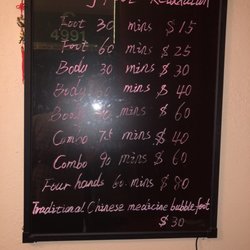 4991
Foot 30 mins $15
Foot 60 mins $25
Body 30 mins $30
Body mins $40
Body mins $60
Combo mins $40
Combo 90 mins $60
Four hands 60 mins $80
Traditional Chinese medicine bubble foot
$30